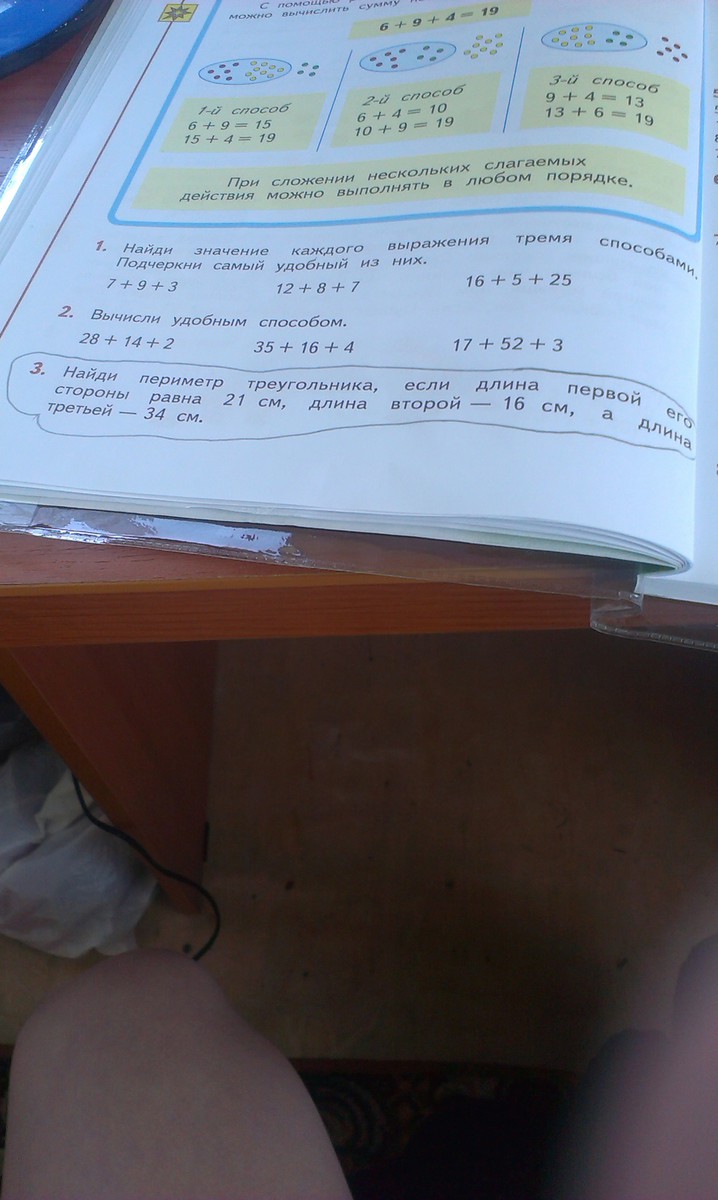 С помощью
можно вычислить сумму
6 + 9 + 4 = 19
1-й способ
6 + 9 = 15
15 + 4 = 19
2-й способ
6 + 4 = 10
10 + 9 = 19
3-й способ
9 + 4 = 13
13 + 6 = 19
При сложении нескольких слагаемых
действия можно выполнять в любом порядке.
1. Найди значение каждого выражения тремя способами.
Подчеркни самый удобный из них.
7 + 9 + 3 12 + 8 + 7 16 + 5 + 25
2. Вычисли удобным способом.
28 + 14 + 2 35 + 16 + 4 17 + 52 + 3
3. Найди периметр треугольника, если длина первой его
стороны равна 21 см, длина второй — 16 см, а длина
третьей — 34 см.